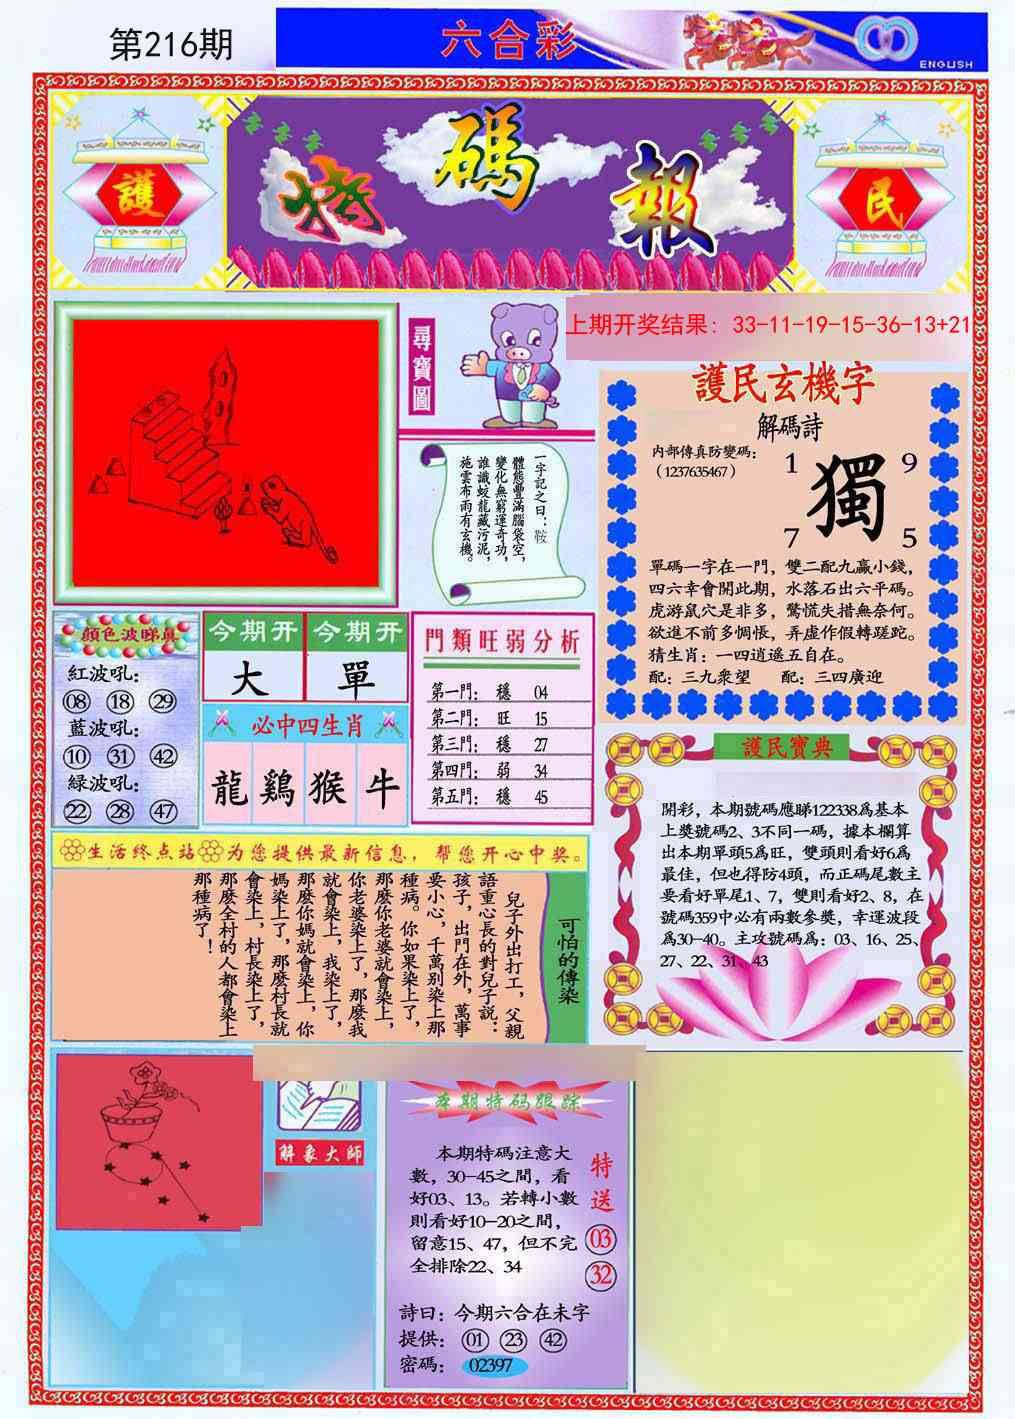 第216期
六合彩
ENGLISH
護
特碼報
民
尋寶圖
上期开奖结果: 33-11-19-15-36-13+21
一字記之曰：鞍
體態豐滿腦袋空，
變化無窮運奇功，
誰識蛟龍藏污泥，
施雲布雨有玄機。
護民玄機字
解碼詩
内部傳真防變碼：
（1237635467）
1 9
獨
7 5
單碼一字在一門，雙二配九贏小錢，
四六幸會開此期，水落石出六平碼。
虎游鼠穴是非多，驚慌失措無奈何。
欲進不前多惆悵，弄虛作假轉蹉跎。
猜生肖：一四逍遥五自在。
配：三九衆望 配：三四廣迎
顔色波睇真
紅波吼：
08 18 29
藍波吼：
10 31 42
綠波吼：
22 28 47
今期开 今期开
大 單
必中四生肖
龍 鷄 猴 牛
門類旺弱分析
第一門： 穩 04
第二門： 旺 15
第三門： 穩 27
第四門： 弱 34
第五門： 穩 45
護民寶典
開彩，本期號碼應睇122338爲基本
上獎號碼2、3不同一碼，據本欄算
出本期單頭5爲旺，雙頭則看好6爲
最佳，但也得防4頭，而正碼尾數主
要看好單尾1、7，雙則看好2、8，在
號碼359中必有兩數參獎，幸運波段
爲30-40。主攻號碼爲：03、16、25、
27、22、31、43
生活终点站 为您提供最新信息，帮您开心中奖。
可怕的傳染
兒子外出打工，父親
語重心長的對兒子説：
孩子，出門在外，萬事
要小心，千萬别染上那
種病。你如果染上了，
那麽你老婆就會染上，
你老婆染上了，那麽我
就會染上，我染上了，
那麽你媽就會染上，你
媽染上了，那麽村長就
會染上，村長染上了，
那麽全村的人都會染上
那種病了！
解象大師
本期特码跟踪
本期特碼注意大
數，30-45之間，看
好03、13。若轉小數
則看好10-20之間，
留意15、47，但不完
全排除22、34
特送
03
32
詩曰：今期六合在未字
提供： 01 23 42
密碼： 02397